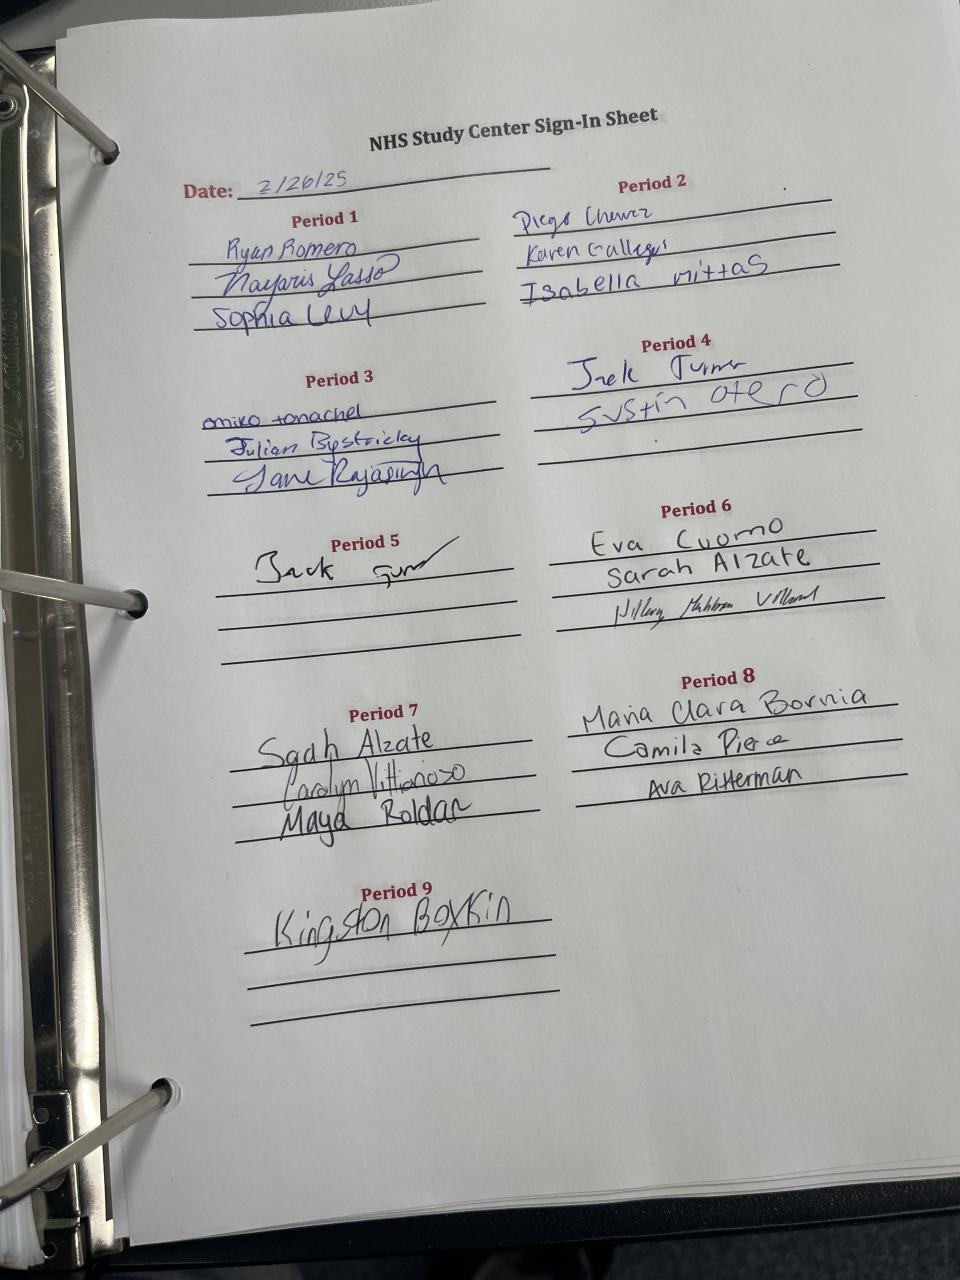 NHS Study Center Sign-In Sheet
Date: 2/26/25
Period 1
Ryan Romero
Nayaris Lasso
Sophia Levy
Period 2
Diego Chavez
Karen Gallegos
Isabella
Period 3
Julian Bystricky
Rajasingh
Period 4
Jack Turner
otero
Period 5
Jack
Period 6
Eva Cuomo
Sarah Alzate
Period 7
Alzate
Carolyn
Maya Roldan
Period 8
Maria Clara Bornia
Camila Pierce
Ava Ritterman
Period 9
Kingston Boykin